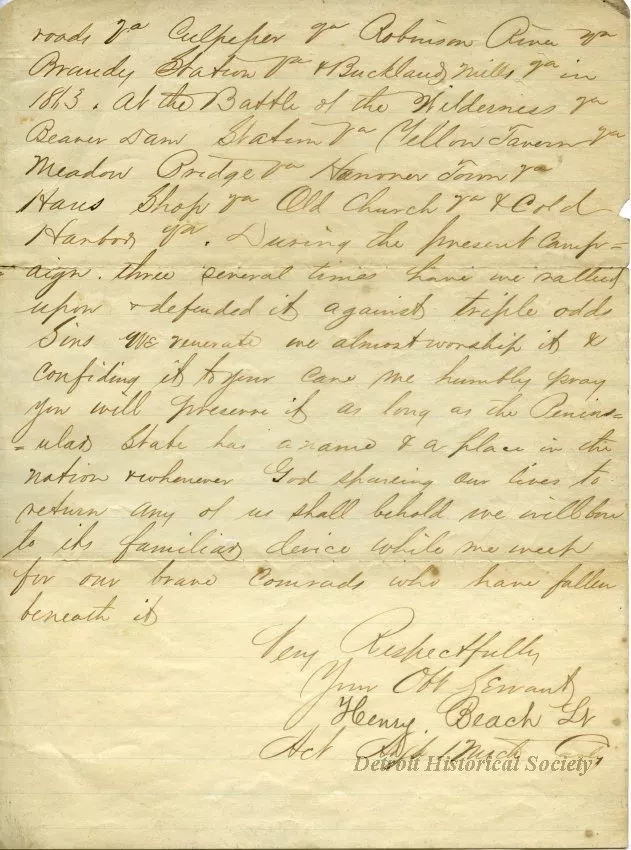 roads Va Culpeper Va Robinson River Va
Brandy Station Va & Buckland Mills Va in
1863. At the Battle of the Wilderness Va
Beaver Dam Station Va Yellow Tavern Va
Meadow Bridge Va Hanover Town Va
Haus Shop Va Old Church Va & Cold
Harbor Va. During the present Camp=
aign. three several times have we rallied
upon & defended it against triple odds
Sins We venerate we almost worship it &
Confiding it to your care we humbly pray
you will preserve it as long as the Penins=
=ular State has a name & a place in the
nation & whenever God sparing our lives to
return any of us shall behold we will bow
to its familiar device while we weep
for our brave Comrads who have fallen
beneath it
Very Respectfully
Your Obt Servant
Henry Beach Lt
Act Adjt 1 Mich
Detroit Historical Society